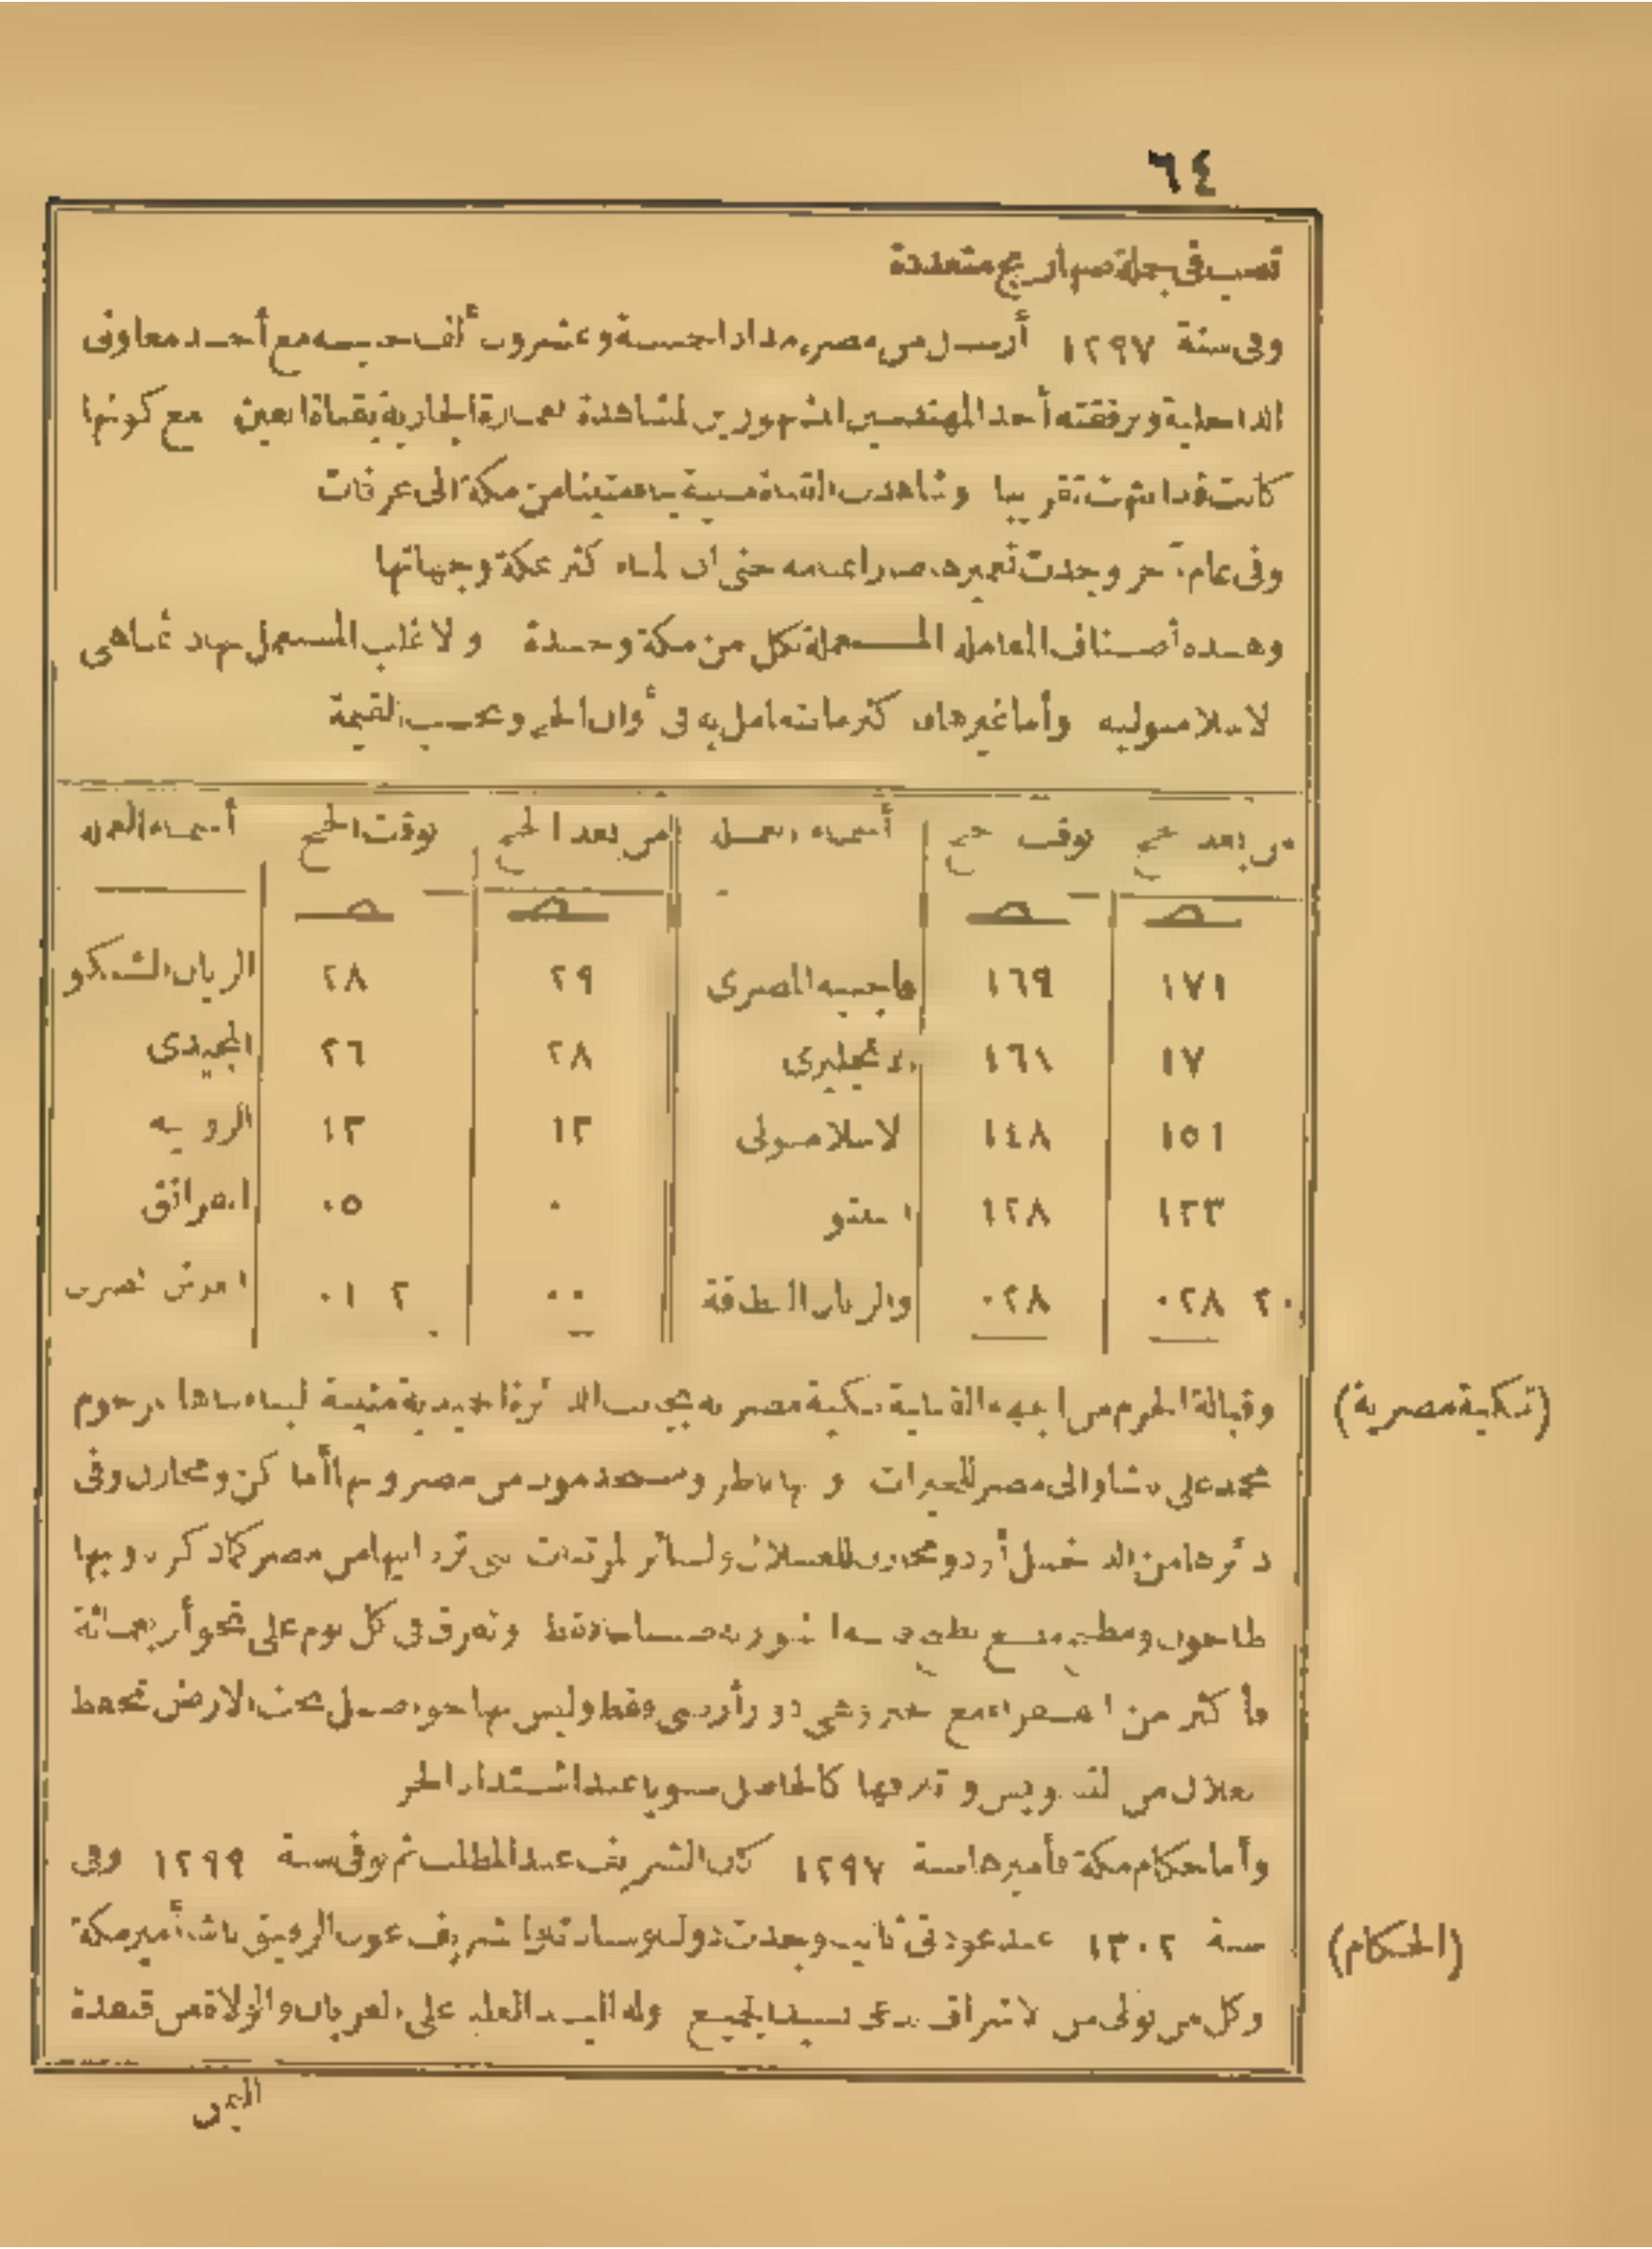 ٦٤
تصب فى جملة صهاريج متعددة
وفى سنة ١٢٩٧ أرسل من مصر مدادا خمسة وعشرون ألف جنيه مع أحد معاونى
الداخلية وبرفقته أحد المهندسين المشهورين لمشاهدة العمارة الجارية بقناة العين مع كونها
كانت قد انتهت تقريبا وشاهدت القناة مبنية بناء متينا من مكة الى عرفات
وفى عام آخر وجدت تعميرها صار اعتمامه حتى ان الماء كثر بمكة وجهاتها
وهذه أصناف المعاملة المستعملة بكل من مكة وجدة والاغلب المستعمل بهاد انما هى
الاسلامبوليه وأما غيرها فاكثر ما يتعامل به فى أوان الحج وبحسب القيمة
من بعد الحج بوقت الحج أسماء العمل من بعد الحج بوقت الحج أسماء العمله
صـ صـ صـ صـ
١٧١ ١٦٩ فالجنيه المصرى ٢٩ ٢٨ الريال الشنكو
١٧ ١٦٨ الانجليزى ٢٨ ٢٦ المجيدى
١٥١ ١٤٨ الاسلامبولى ١٣ ١٣ الروبيه
١٣٣ ١٢٨ البنتو ٠ ٠٥ الفرانق
٢٠ ٠٢٨ ٠٢٨ والريال الطاقة ٠٠ ٢ ٠١ القرش المصرى
(تكية مصرية)
وقبالة الحرم من الجهة القبلية تكية مصرية بجانب الدائرة الحميدية متينة البناء بناها المرحوم
محمد على باشا والى مصر للخيرات وبها ناظر ومستخدمون من مصر وبها أماكن ومخازن وفى
دائرها من الداخل أرد ومخازن للغلال ولسائر المرتبات التى ترد اليها من مصر كما ذكر وبها
طاحون ومطبخ متسع يطبخ فيه الشوربة صباحا فقط وتفرق فى كل يوم على نحو أربعمائة
فأكثر من الفقراء مع خبز وشى دور أرضى فقط وليس بها حواصل تحت الارض تحفظ
الغلال من التسويس وتلفها كالحاصل سنويا عند اشتداد الحر
وأما حكام مكة فأميرها سنة ١٢٩٧ كان الشريف عبد المطلب ثم توفى سنة ١٢٩٩ وفى
(الحكام)
سنة ١٣٠٢ عند عودتى ثانيا وجدت دولتلو سيادتلو الشريف عون الرفيق باشا أمير مكة
وكل من تولى من الاشراف يدعى سيد الجميع وله اليد العليا على العربان والولاة من قنفدة
اليمن